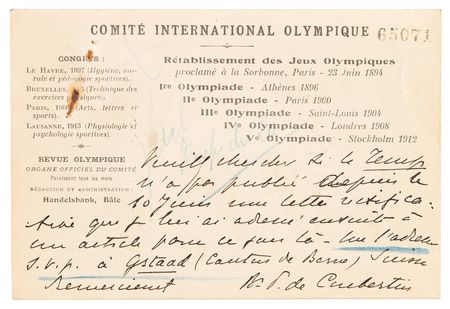 COMITÉ INTERNATIONAL OLYMPIQUE 65071
CONGRÈS :
LE HAVRE, 1897 (Hygiène, morale et pédagogie sportives).
BRUXELLES, (Technique des exercices physiques).
PARIS, (Arts, lettres et sports).
LAUSANNE, 1913 (Physiologie et psychologie sportives).
REVUE OLYMPIQUE
ORGANE OFFICIEL DU COMITÉ
Paraissant tous les mois
RÉDACTION ET ADMINISTRATION
Handelsbank, Bâle
Rétablissement des Jeux Olympiques
proclamé à la Sorbonne, Paris - 23 Juin 1894
Iro Olympiade - Athènes 1896
IIo Olympiade - Paris 1900
IIIo Olympiade - Saint-Louis 1904
IVo Olympiade - Londres 1908
Ve Olympiade - Stockholm 1912
Veuill chercher si le Temps
n'a pas publié depuis le
10 Juin une lettre rectifica-
tive que je lui ai adressé ensuite à
un article paru ce jour là - me l'adresser
s.v.p. à Gstaad (Canton de Berne) Suisse
Remerciement
Bn P. de Coubertin